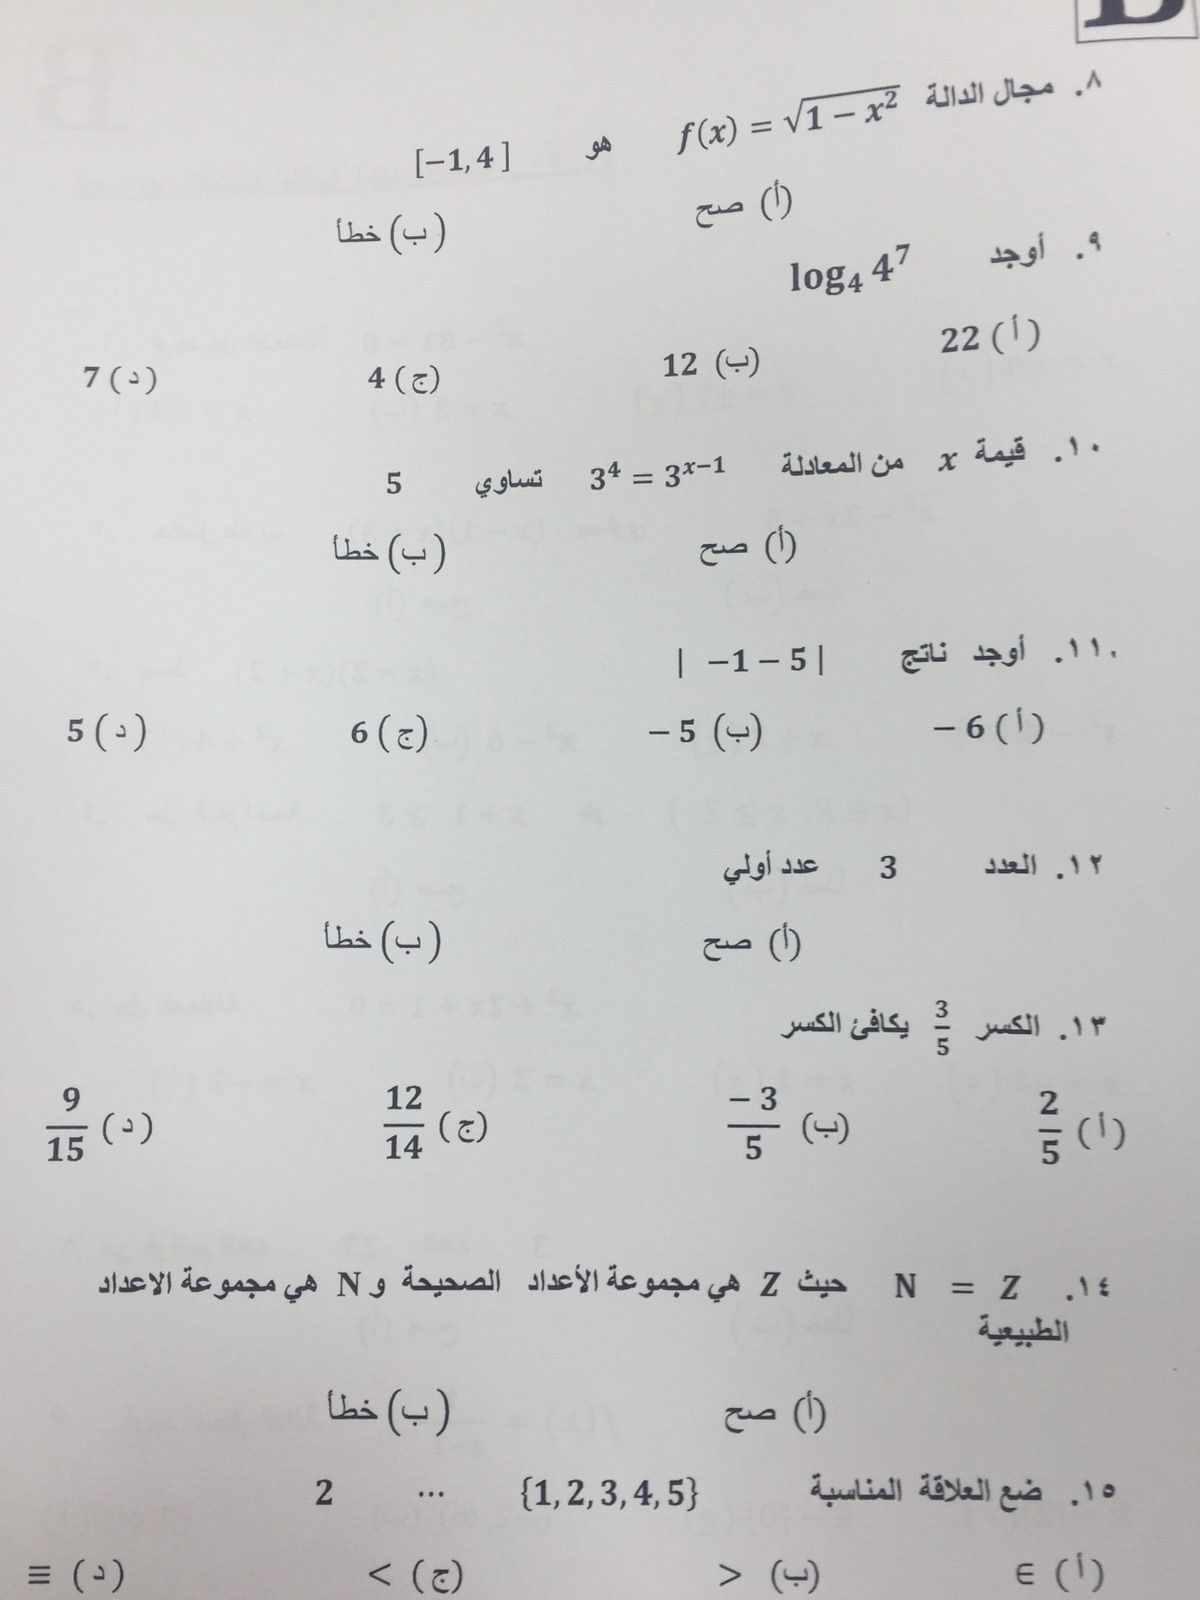 B
٨. مجال الدالة f(x) = √1 − x² هو [−1, 4 ]
(أ) صح (ب) خطأ
٩. أوجد log₄ 4⁷
(أ) 22 (ب) 12 (ج) 4 (د) 7
١٠. قيمة x من المعادلة 3⁴ = 3ˣ⁻¹ تساوي 5
(أ) صح (ب) خطأ
١١. أوجد ناتج | −1 − 5 |
(أ) − 6 (ب) − 5 (ج) 6 (د) 5
١٢. العدد 3 عدد أولي
(أ) صح (ب) خطأ
١٣. الكسر 3/5 يكافئ الكسر
(أ) 2/5 (ب) − 3/5 (ج) 12/14 (د) 9/15
١٤. N = Z حيث Z هي مجموعة الأعداد الصحيحة و N هي مجموعة الاعداد
الطبيعية
(أ) صح (ب) خطأ
١٥. ضع العلاقة المناسبة {1, 2, 3, 4, 5} ... 2
(أ) ∈ (ب) > (ج) < (د) ≡